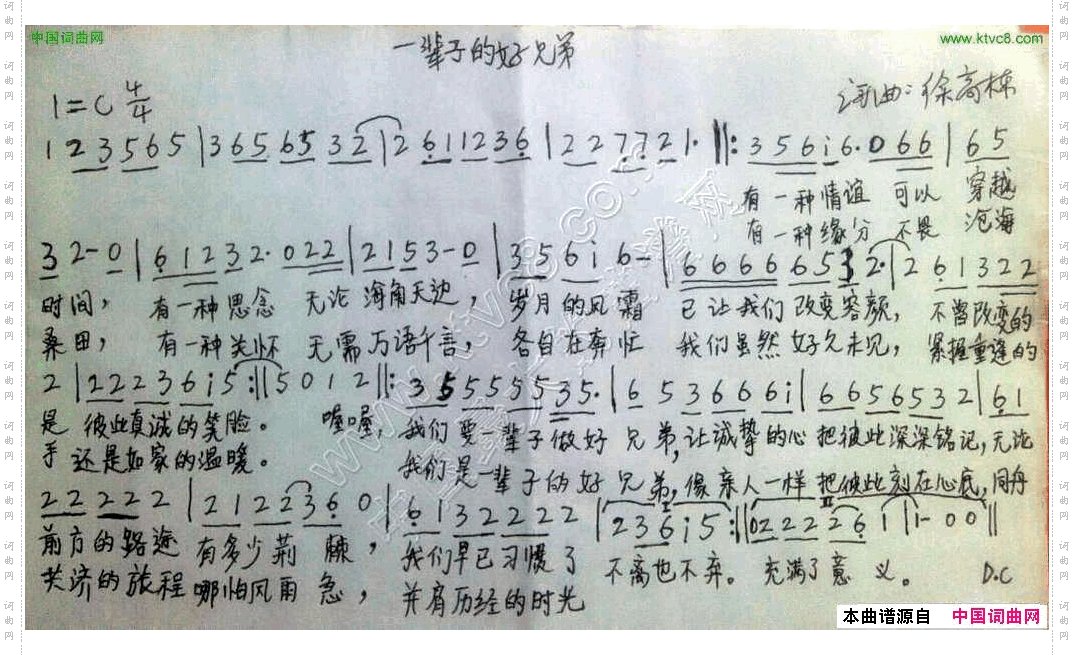 中国词曲网
www.ktvc8.com
一辈子的好兄弟
1=C 4/4
词曲：徐高栋
1 2 3 5 6 5 | 3 6 5 6 5 3 2 | 2 6 1 1 2 3 6 | 2 2 7 7 2 1· ‖: 3 5 6 i 6· 0 6 6 | 6 5
有一种情谊 可以 穿越
有一种缘分 不畏 沧海
3 2 - 0 | 6 1 2 3 2· 0 2 2 | 2 1 5 3 - 0 | 3 5 6 i 6 - | 6 6 6 6 6 5 3 2· | 2 6 1 3 2 2
时间， 有一种思念 无论 海角天边， 岁月的风霜 已让我们改变容颜， 不曾改变的
桑田， 有一种关怀 无需万语千言， 各自在奔忙 我们虽然好久未见， 紧握重逢的
2 | 2 2 2 3 6 i 5 :‖ 5 0 1 2 ‖: 3 5 5 5 5 5 3 5· | 6 5 3 6 6 6 i | 6 6 5 6 5 3 2 | 6 1
是 彼此真诚的笑脸。 喔喔， 我们要一辈子做好兄弟，让诚挚的心把彼此深深铭记，无论
手 还是如家的温暖。 我们是一辈子的好兄弟，像亲人一样把彼此刻在心底，同舟
2 2 2 2 2 | 2 1 2 2 3 6 0 | 6 1 3 2 2 2 2 | 2 3 6 i 5 :‖ 0 2 2 2 2 6 1 | 1 - 0 0 ‖
前方的路途 有多少荆棘， 我们早已习惯了 不离也不弃。 充满了意义。 D.C
共济的旅程哪怕风雨急， 并肩历经的时光
本曲谱源自 中国词曲网